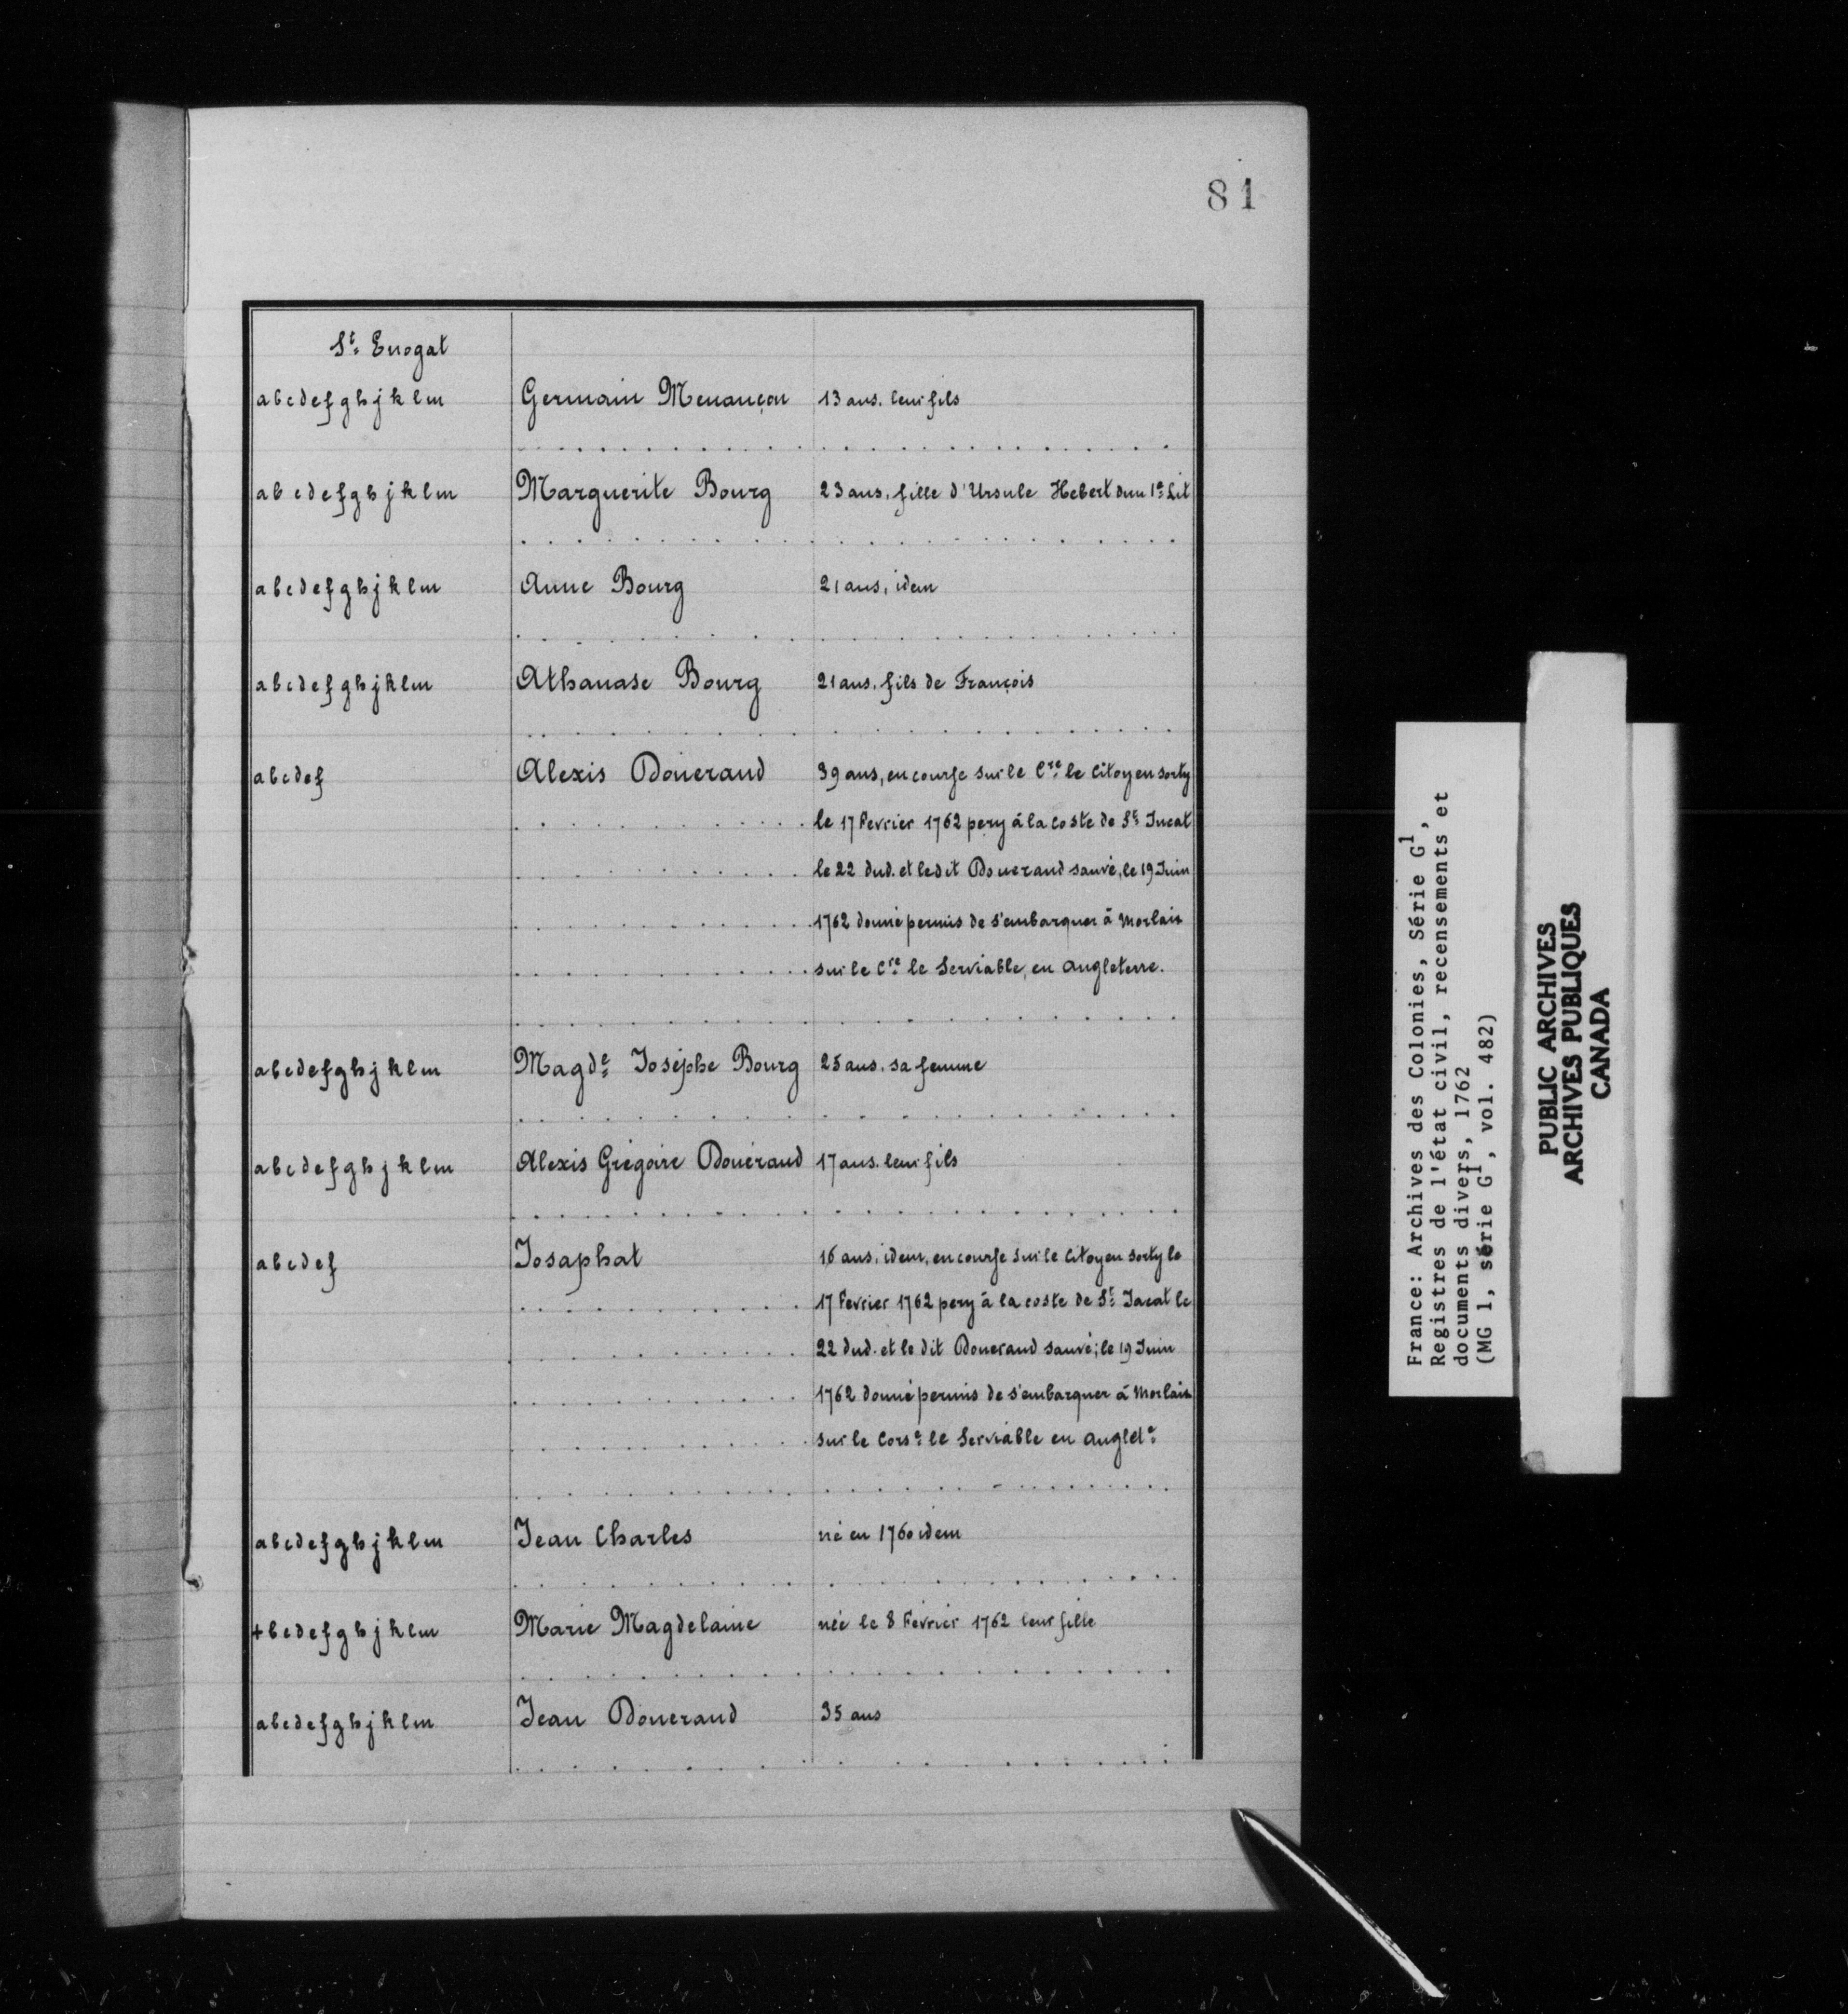 81
St. Enogat
abcdefghjklm Germain Menançon 13 ans. leur fils
abcdefghjklm Marguerite Bourg 23 ans, fille d'Ursule Hebert dun 1er Lit
abcdefghjklm Anne Bourg 21 ans, idem
abcdefghjklm Athanase Bourg 21 ans. fils de François
abcdef Alexis Doueraud 39 ans, en course sur le Cre le Citoyen sorty
le 17 Fevrier 1762 pery á la coste de St. Jucat
le 22 dud. et ledit Doueraud sauvé, le 19 Juin
1762 donné permis de s'embarquer á Morlaix
sur le Cre le Serviable, en Angleterre.
abcdefghjklm Magde Joséphe Bourg 25 ans. sa femme
abcdefghjklm Alexis Grégoire Doueraud 17 ans. leur fils
abcdef Josaphat 16 ans, idem, en course sur le Citoyen sorty le
17 Fevrier 1762 pery á la coste de St. Jacat le
22 dud. et le dit Doueraud sauvé; le 19 Juin
1762 donné permis de s'embarquer á Morlaix
sur le Corse le Serviable en Anglete
abcdefghjklm Jean Charles né en 1760 idem
+bcdefghjklm Marie Magdelaine née le 8 Février 1762 leur fille
abcdefghjklm Jean Doueraud 35 ans
France: Archives des Colonies, Série G1,
Registres de l'état civil, recensements et
documents divers, 1762
(MG 1, série G1, vol. 482)
PUBLIC ARCHIVES
ARCHIVES PUBLIQUES
CANADA